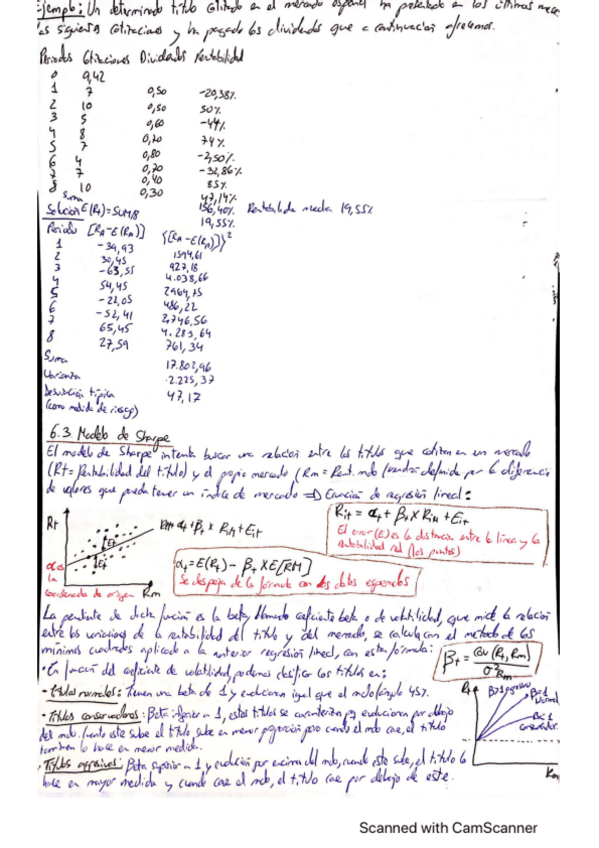 Ejemplo: Un determinado título cotizado en el mercado español ha presentado en los últimos
las siguientes cotizaciones y ha pagado los dividendos que a continuación ofrecemos.
Periodos Cotizaciones Dividendos Rentabilidad
0 9,42
1 7 0,50 -20,38%
2 10 0,50 50%
3 5 0,60 -44%
4 8 0,70 74%
5 7 0,80 -2,50%
6 4 0,70 -32,86%
7 7 0,40 85%
8 10 0,30 47,14%
Suma 156,40% Rentabilidad media 19,55%
Solución E(Rt)=SUM/8 19,55%
Periodo [RA-E(RA)] {[RA-E(RA)]}²
1 -39,93 1594,61
2 30,45 927,18
3 -63,55 4.038,66
4 54,45 2964,75
5 -22,05 486,22
6 -52,41 2,746,56
7 65,45 4.283,64
8 27,59 761,34
Suma 17.802,96
Varianza 2.225,37
Desviación típica 47,17
(como medida de riesgo)
6.3 Modelo de Sharpe
El modelo de Sharpe intenta buscar una relación entre los títulos que cotizan en un mercado
(Rt= Rentabilidad del título) y el propio mercado (Rm = Rent. mdo (vendrá definida por la diferencia
de valores que pueda tener un índice de mercado => Ecuación de regresión lineal:
Rit = αt + βt x RiM + Eit
El error (E) es la distancia entre la línea y la
rentabilidad real (los puntos)
Rt
Rit= αt+βt x RiM+Eit
Et
Et
α es
la
coordenada de origen Rm
αt = E(Rt) - βt x E[RM]
Se despeja de la fórmula con los datos esperados
La pendiente de dicha función es la beta, llamado coeficiente beta o de volatilidad, que mide la relación
entre las variaciones de la rentabilidad del título y del mercado, se calcula con el método de los
mínimos cuadrados aplicado a la anterior regresión lineal, con esta fórmula:
βt = cov (Rt, Rm) / σ²Rm
· En función del coeficiente de volatilidad, podemos clasificar los títulos en:
- títulos normales: Tienen una beta de 1 y evoluciona igual que el mdo (ángulo 45º).
· Títulos conservadores: Beta inferior a 1, estos títulos se caracterizan por evolucionar por debajo
del mdo. Cuando este sube el título sube en menor proporción pero cuando el mdo cae, el título
también lo hace en menor medida.
· Títulos agresivos: Beta superior a 1 y evolución por encima del mdo, cuando este sube, el título lo
hace en mayor medida y cuando cae el mdo, el título cae por debajo de este.
Rt
B>1 agresivo
B=1
Normal
B<1
Conservador
Rm
Scanned with CamScanner